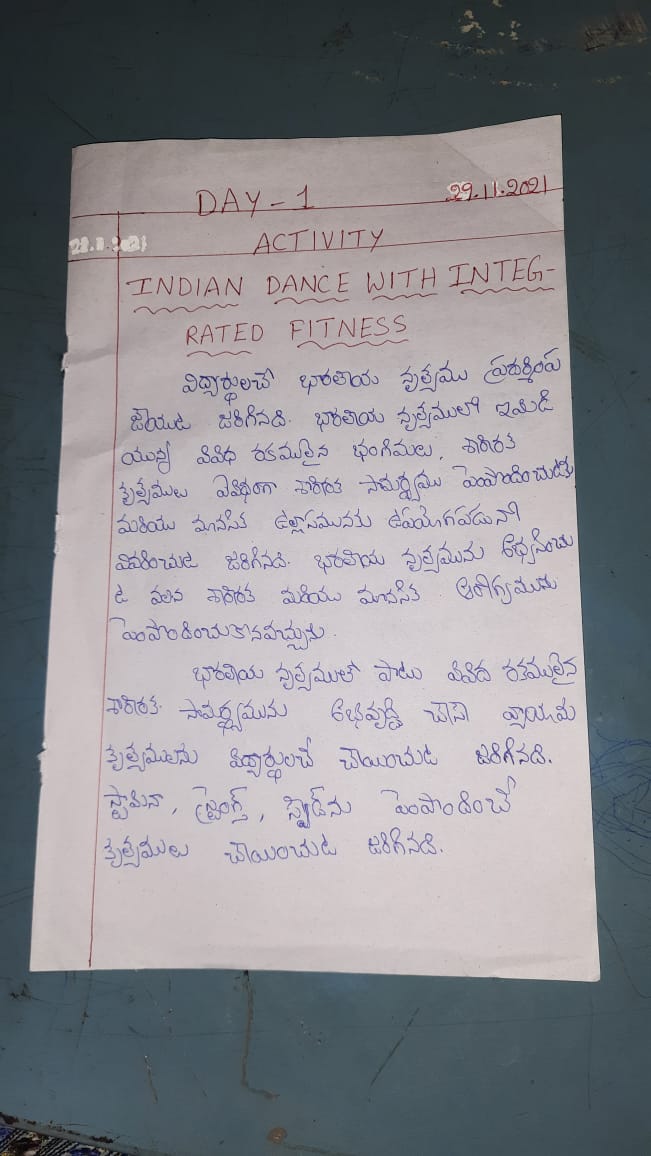 DAY - 1
29.11.2021
ACTIVITY
INDIAN DANCE WITH INTEG-
RATED FITNESS
విద్యార్థులచే భారతీయ నృత్యము ప్రదర్శింప
చేయుట జరిగినది. భారతీయ నృత్యములో ఇమిడి
యున్న వివిధ రకములైన భంగిమలు, శారీరక
కృత్యములు ఏవిధంగా శారీరక సామర్థ్యము పెంపొందించుటకు
మరియు మానసిక ఉల్లాసమునకు ఉపయోగపడునో
వివరించుట జరిగినది. భారతీయ నృత్యమును అభ్యసించు
ట వలన శారీరక మరియు మానసిక ఆరోగ్యమును
పెంపొందించుకొనవచ్చును.
భారతీయ నృత్యముతో పాటు వివిద రకములైన
శారీరక సామర్థ్యమును అభివృద్ధి చేసే వ్యాయమ
కృత్యములను విద్యార్థులచే చేయించుట జరిగినది.
స్టామినా, స్ట్రెంగ్త్, స్పీడ్‌ను పెంపొందించే
కృత్యములు చేయించుట జరిగినది.